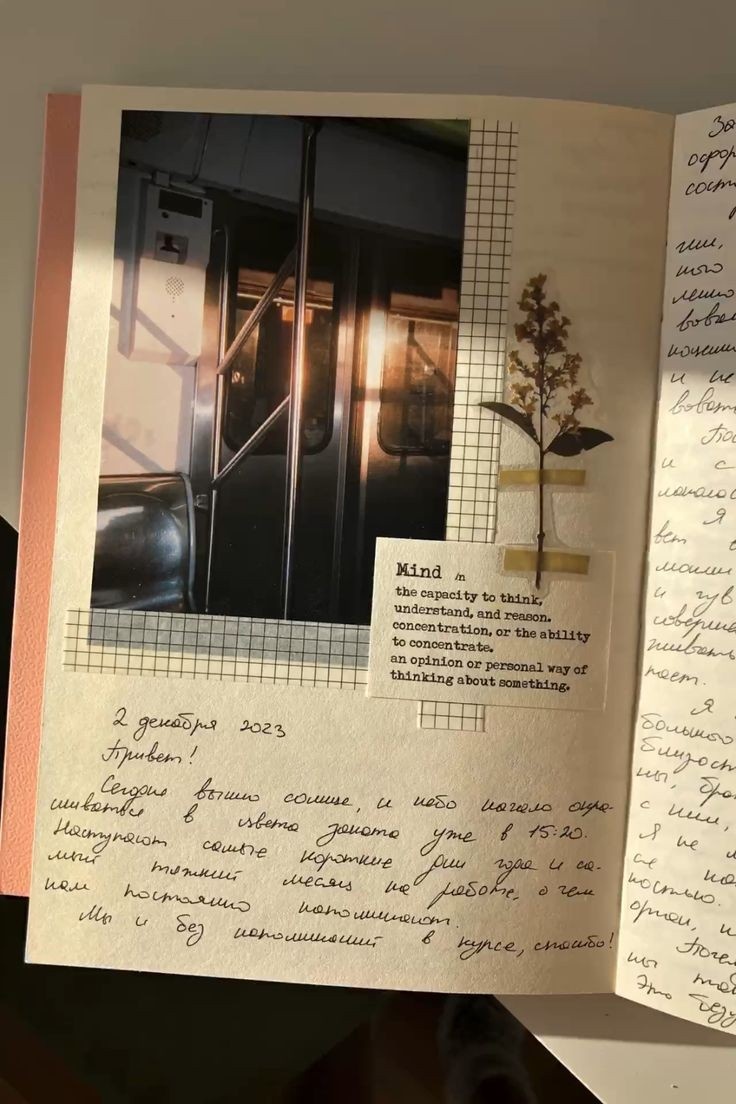 Mind /n
the capacity to think,
understand, and reason.
concentration, or the ability
to concentrate.
an opinion or personal way of
thinking about something.
2 декабря 2023
Привет!
Сегодня вышло солнце, и небо начало окра-
шиваться в цвета заката уже в 15:20.
Наступают самые короткие дни года и са-
мый тяжкий месяц на работе, о чем
нам постоянно напоминают.
Мы и без напоминаний в курсе, спасибо!
За
офор
сост
гии,
ного
вова
и не
вовать
и с
Я
вет
моими
и чув
совершен
Я
большого
близост
ны, бра
с ним,
Я не
се на
ностью.
Почем
ны
Это безу